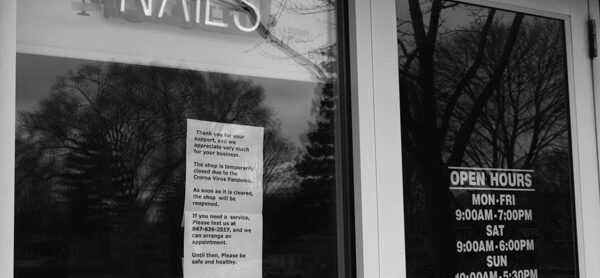 NAILS
Thank you for your
support, and we
appreciate very much
for your business.
The shop is temporarily
closed due to the
Crorna Virus Pandemic.
As soon as it is cleared,
the shop will be
reopened.
If you need a service,
Please text us at
847-636-2527, and we
can arrange an
appointment.
Until then, Please be
safe and healthy.
OPEN HOURS
MON-FRI
9:00AM-7:00PM
SAT
9:00AM-6:00PM
SUN
10:00AM-5:30PM